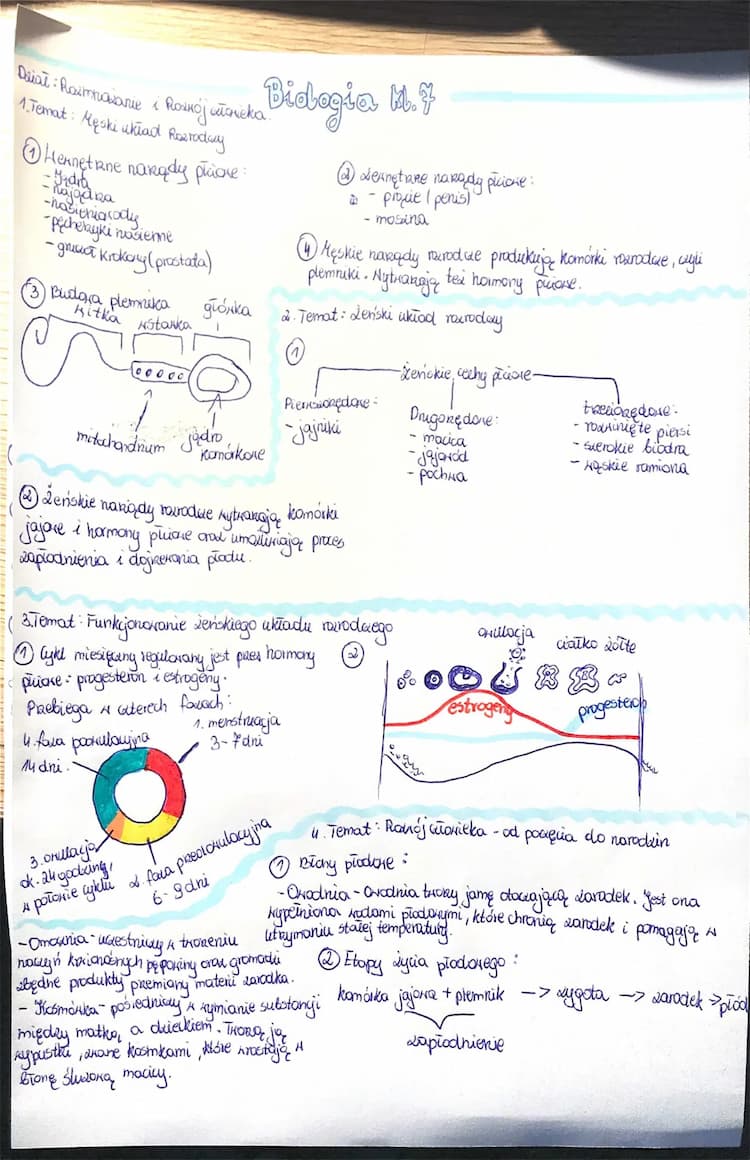 Biologia kl.7
Dział: Rozmnażanie i Rozwój człowieka.
1.Temat: Męski układ Rozrodczy
① Wewnętrzne narządy płciowe:
- Jądra
- najądrza
- nasieniowody
- pęcherzyki nasienne
- gruczoł krokowy (prostata)
② Zewnętrzne narządy płciowe:
- prącie (penis)
- moszna
④ Męskie narządy rozrodcze produkują komórki rozrodcze, czyli
plemniki. Wytwarzają też hormony płciowe.
③ Budowa plemnika
witka
wstawka
główka
mitochondrium
jądro
komórkowe
2. Temat: Żeński układ rozrodczy
①
Żeńskie cechy płciowe
Pierwszorzędowe:
- jajniki
Drugorzędowe:
- macica
- jajowód
- pochwa
trzeciorzędowe:
- rozwinięte piersi
- szerokie biodra
- wąskie ramiona
② Żeńskie narządy rozrodcze wytwarzają komórki
jajowe i hormony płciowe oraz umożliwiają proces
zapłodnienia i dojrzewania płodu.
3.Temat: Funkcjonowanie żeńskiego układu rozrodczego
① Cykl miesięczny regulowany jest przez hormony
płciowe: progesteron i estrogeny.
Przebiega w czterech fazach:
1. menstruacja
3-7 dni
4. faza poowulacyjna
14 dni.
3. owulacja
ok. 24 godziny,
w połowie cyklu
2. faza przedowulacyjna
6-9 dni
②
owulacja
ciałko żółte
estrogeny
progesteron
4. Temat: Rozwój człowieka - od poczęcia do narodzin
① Błony płodowe:
- Owodnia - Owodnia tworzy jamę otaczającą zarodek. Jest ona
wypełniona wodami płodowymi, które chronią zarodek i pomagają w
utrzymaniu stałej temperatury.
- Omocznia - uczestniczy w tworzeniu
naczyń krwionośnych pępowiny oraz gromadzi
zbędne produkty przemiany materii zarodka.
- Kosmówka - pośredniczy w wymianie substancji
między matką, a dzieckiem. Tworzą ją
wypustki, zwane kosmkami, które wrastają w
błonę śluzową macicy.
② Etapy życia płodowego:
komórka jajowa + plemnik -> zygota -> zarodek -> płód
zapłodnienie